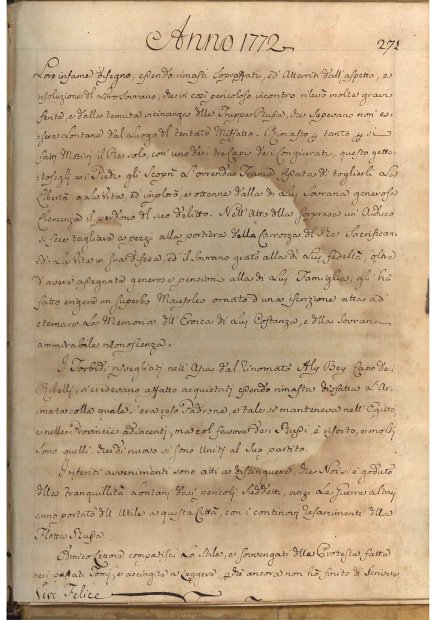 Anno 1772
271
Loro infame disegno, essendo rimasti Sopraffati, ed Atterriti dall'aspetto, e
risoluzione del Loro Sovrano, che in così pericoloso incontro rilevò molte gravi
ferite, e dalla temuta vicinanza delle Truppe Russe, che Sapevano non es-
sere Lontane dal Luogo del tentato Misfatto. Rimasto p tanto, p si
fatti Motivi il Re solo, con uno dei tre Capi dei Congiurati, questo getta-
tosegli ai Piedi gli Scoprì L'orrenda Trama ordita di toglierli La
Libertà, o La Vita, ed implorò, e ottenne dalla di Lui Sovrana generosa
Clemenza il perdono del suo delitto. Nell'Atto della Sorpresa un Aiduco
si fece tagliare a pezzi alla portiera della Carrozza del Re Sacrifican-
do La Vita in Sua difesa, ed il Sovrano grato alla di Lui fedeltà, oltre
d'avere assegnate generose pensioni alla di Lui Famiglia, gli hà
fatto erigere un Superbo Mausoleo ornato d'una iscrizione atta ad
eternare La Memoria dell'Eroica di Lui Costanza, e della Sovrana
ammirabile riconoscenza.
I Torbidi risvegliati nell'Asia dal rinomato Aly Bey Capo dei
Ribelli, si credevano affatto acquietati essendo rimasta disfatta L'Ar-
mata colla quale s'era reso Padrone, e tale si manteneva nell'Egitto
e nelle Provincie adiacenti, ma col favore dei Russi, è risorto, e molti
Sono quelli che di nuovo si sono Uniti al Suo partito.
I riferiti avvenimenti sono atti a distinguere, che Noi si è goduto
della tranquillità Lontani dai pericoli Suddetti, anzi Le Guerre altrui
anno portato dell'Utile a questa Città, con i continovi resarcimenti della
Flotta Russa
Amico Lettore compatisci Lo Stile, e sovvengati delle Proteste fatte
nei passati Tomi, e accingiti a Leggere, p che ancora non hò finito di Scrivere
Vivi Felice